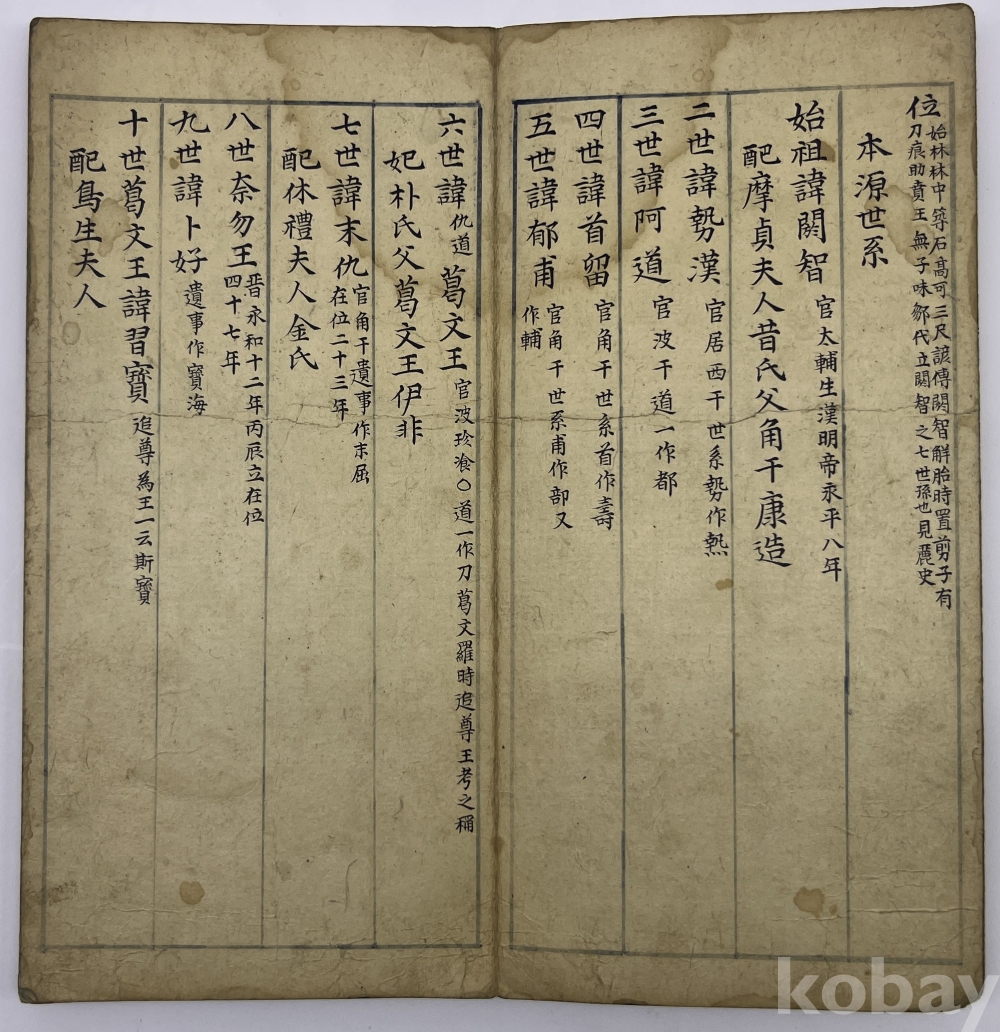 位始林林中築石高可三尺諺傳閼智解胎時置剪子有
刀痕助賁王無子味鄒代立閼智之七世孫也見麗史
本源世系
始祖諱閼智官太輔生漢明帝永平八年
配摩貞夫人昔氏父角干康造
二世諱勢漢官居西干世系勢作熱
三世諱阿道官波干道一作都
四世諱首留官角干世系首作壽
五世諱郁甫官角干世系甫作部又
作輔
六世諱仇道葛文王官波珍飡○道一作刀葛文羅時追尊王考之稱
妃朴氏父葛文王伊非
七世諱末仇官角干遺事作末屈
在位二十三年
配休禮夫人金氏
八世奈勿王晋永和十二年丙辰立在位
四十七年
九世諱卜好遺事作寶海
十世葛文王諱習寶追尊為王一云斯寶
配鳥生夫人
kobay